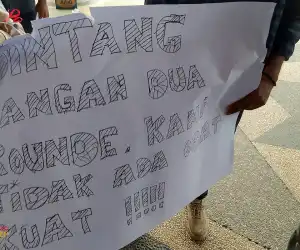 INTANG
ANGAN DUA
ROUNDE.
TIDAK ADA
KUAT !!!!!